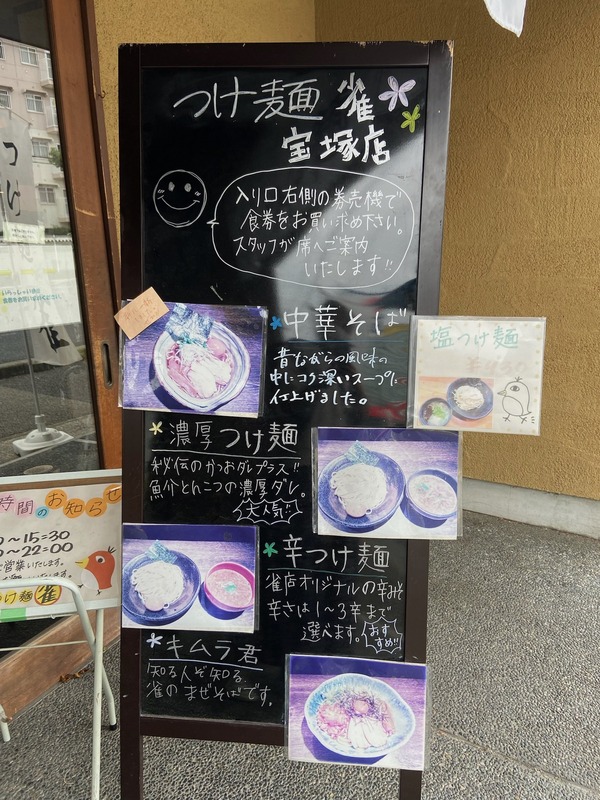 つけ麺 雀
宝塚店
入り口右側の券売機で
食券をお買い求め下さい。
スタッフが席へご案内
いたします!!
中華そば
昔ながらの風味の
中にコク深いスープに
仕上げました。
塩つけ麺
濃厚つけ麺
秘伝のかつおダレプラス!!
魚介とんこつの濃厚ダレ。
大人気!!
辛つけ麺
雀店オリジナルの辛みそ
辛さは1〜3辛まで
選べます。
おすすめ!!
キムラ君
知る人ぞ知る、
雀のまぜそばです。
時間のお知らせ
〜15:30
〜22:00
営業いたします。
つけ麺 雀
つけ